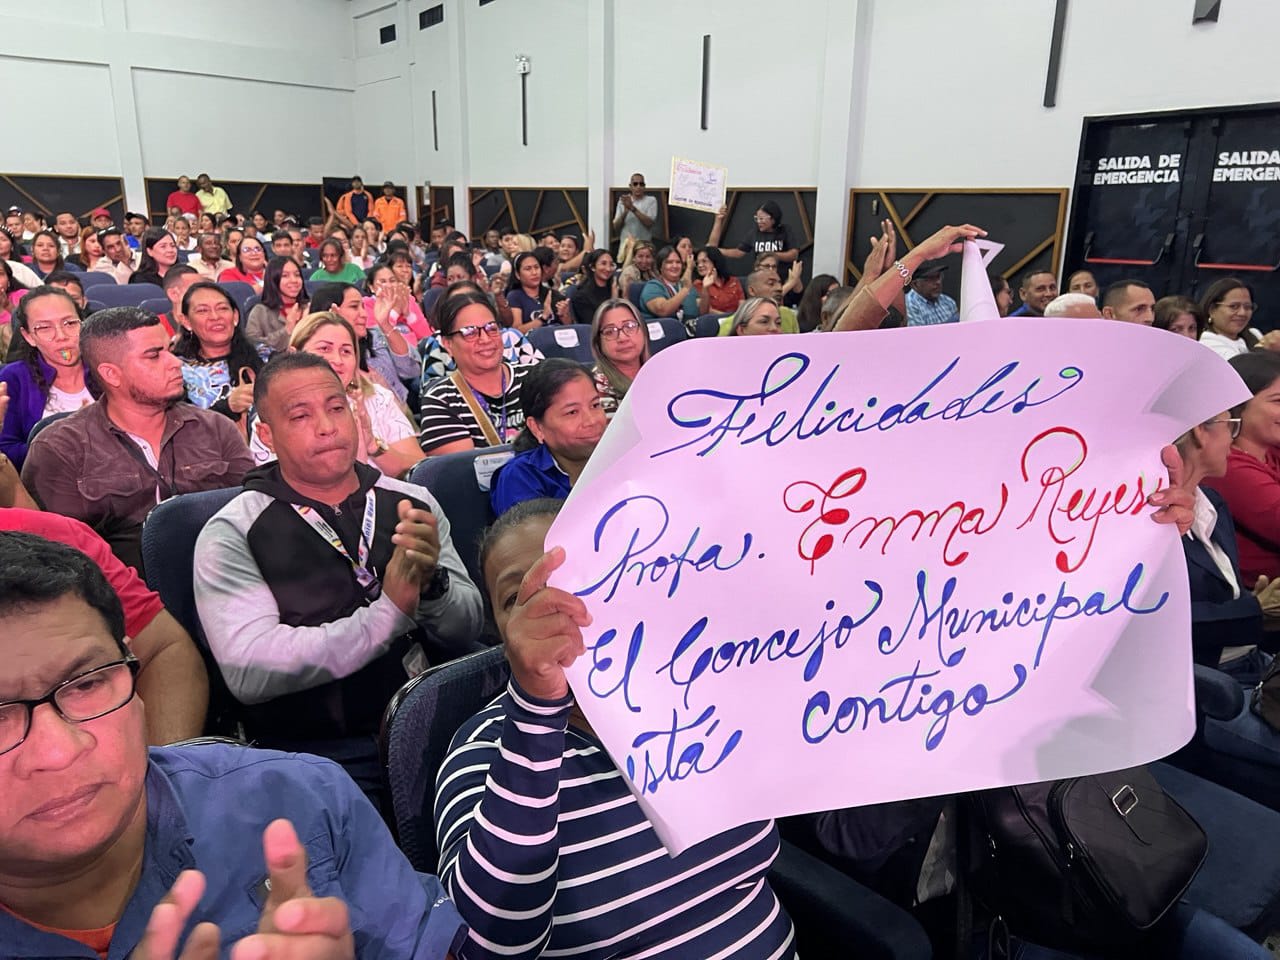 SALIDA DE
EMERGENCIA
SALIDA
EMERGEN
Felicidades
Profa. Emma Reyes
El Concejo Municipal
está contigo